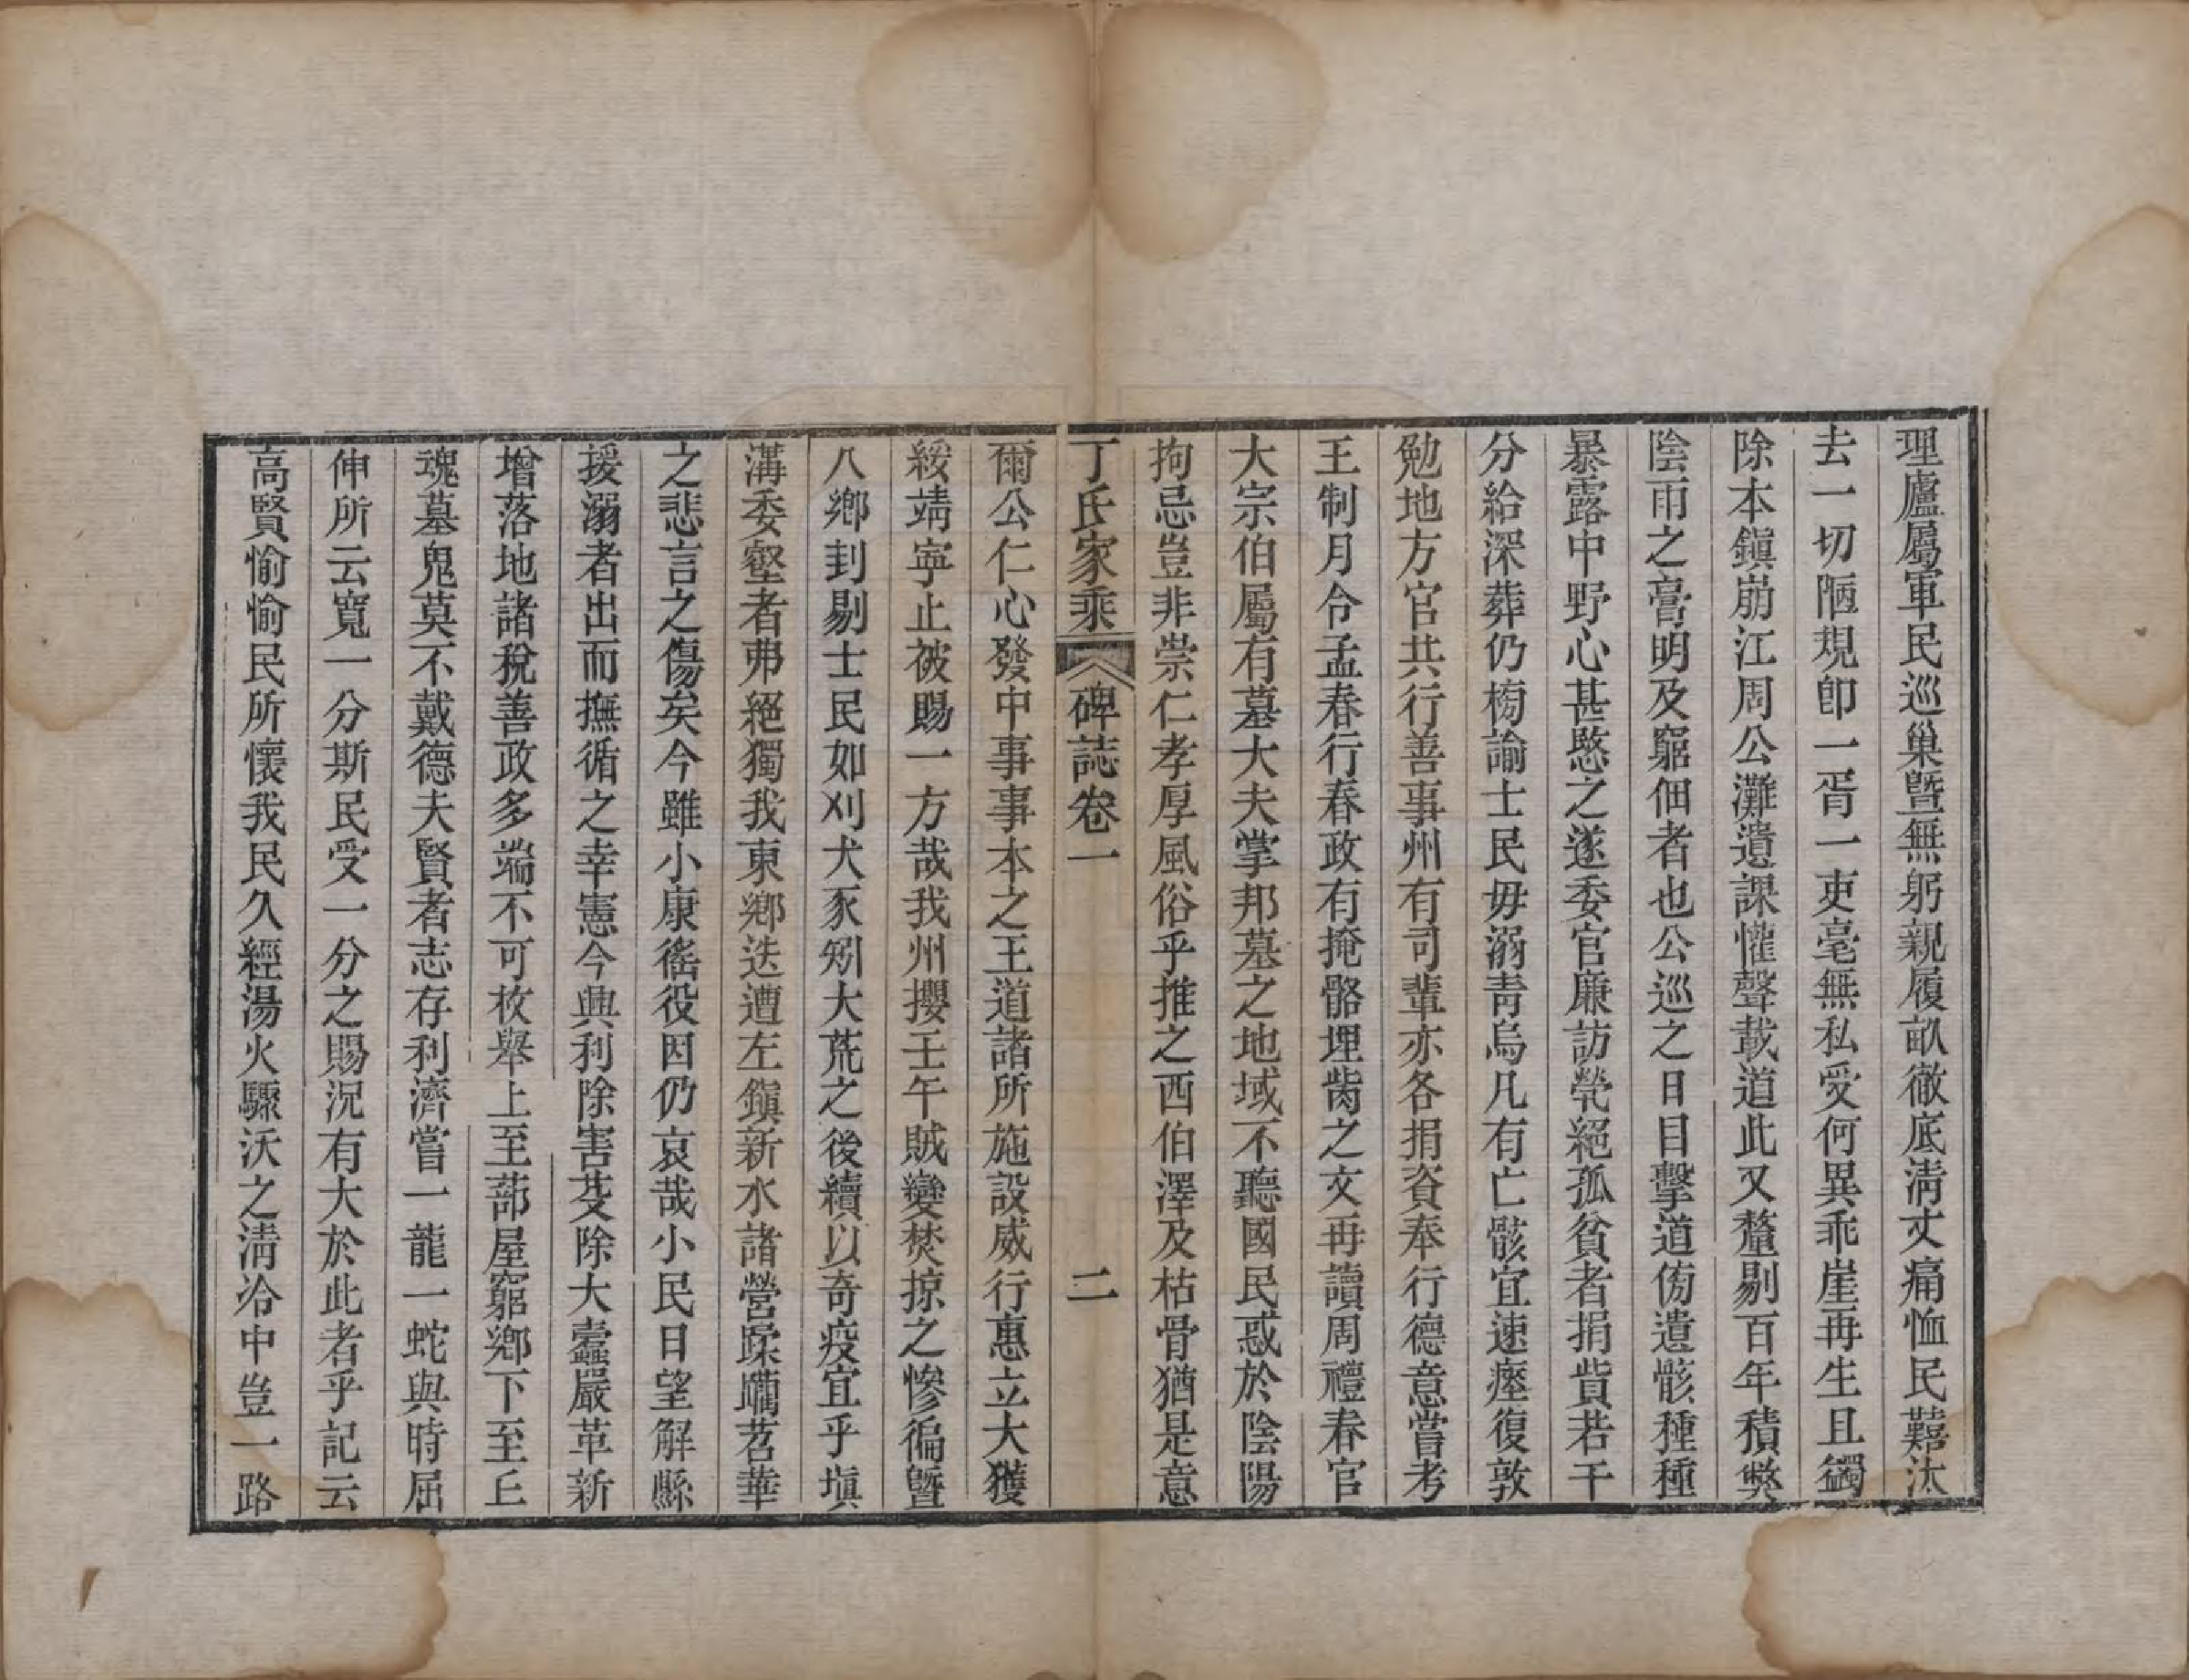 理廬屬軍民巡巢曁無躬親履畝徹底淸丈痛恤民囏汰
去一切陋規卽一胥一吏毫無私受何異乖崖再生且蠲
除本鎭崩江周公灘遺課懽聲載道此又釐剔百年積弊
陰雨之膏明及窮佃者也公巡之日目擊道傍遺骸種種
暴露中野心甚愍之遂委官廉訪煢絕孤貧者捐貲若干
分給深葬仍榜諭士民毋溺靑烏凡有亡骸宜速瘞復敦
勉地方官共行善事州有司輩亦各捐資奉行德意嘗考
王制月令孟春行春政有掩骼埋胔之文再讀周禮春官
大宗伯屬有墓大夫掌邦墓之地域不聽國民惑於陰陽
拘忌豈非崇仁孝厚風俗乎推之西伯澤及枯骨猶是意
丁氏家乘 碑誌卷一 二
爾公仁心發中事事本之王道諸所施設威行惠立大獲
綏靖寧止被賜一方哉我州攖壬午賊變焚掠之慘徧曁
八鄕刲剔士民如刈犬豕矧大荒之後續以奇疫宜乎塡
溝委壑者弗絕獨我東鄕迭遭左鎭新水諸營蹂躪苕華
之悲言之傷矣今雖小康徭役因仍哀哉小民日望解縣
援溺者出而撫循之幸憲今興利除害芟除大蠹嚴革新
增落地諸稅善政多端不可枚舉上至蔀屋窮鄕下至丘
魂墓鬼莫不戴德夫賢者志存利濟嘗一龍一蛇與時屈
伸所云寬一分斯民受一分之賜況有大於此者乎記云
高賢愉愉民所懷我民久經湯火驟沃之淸冷中豈一路